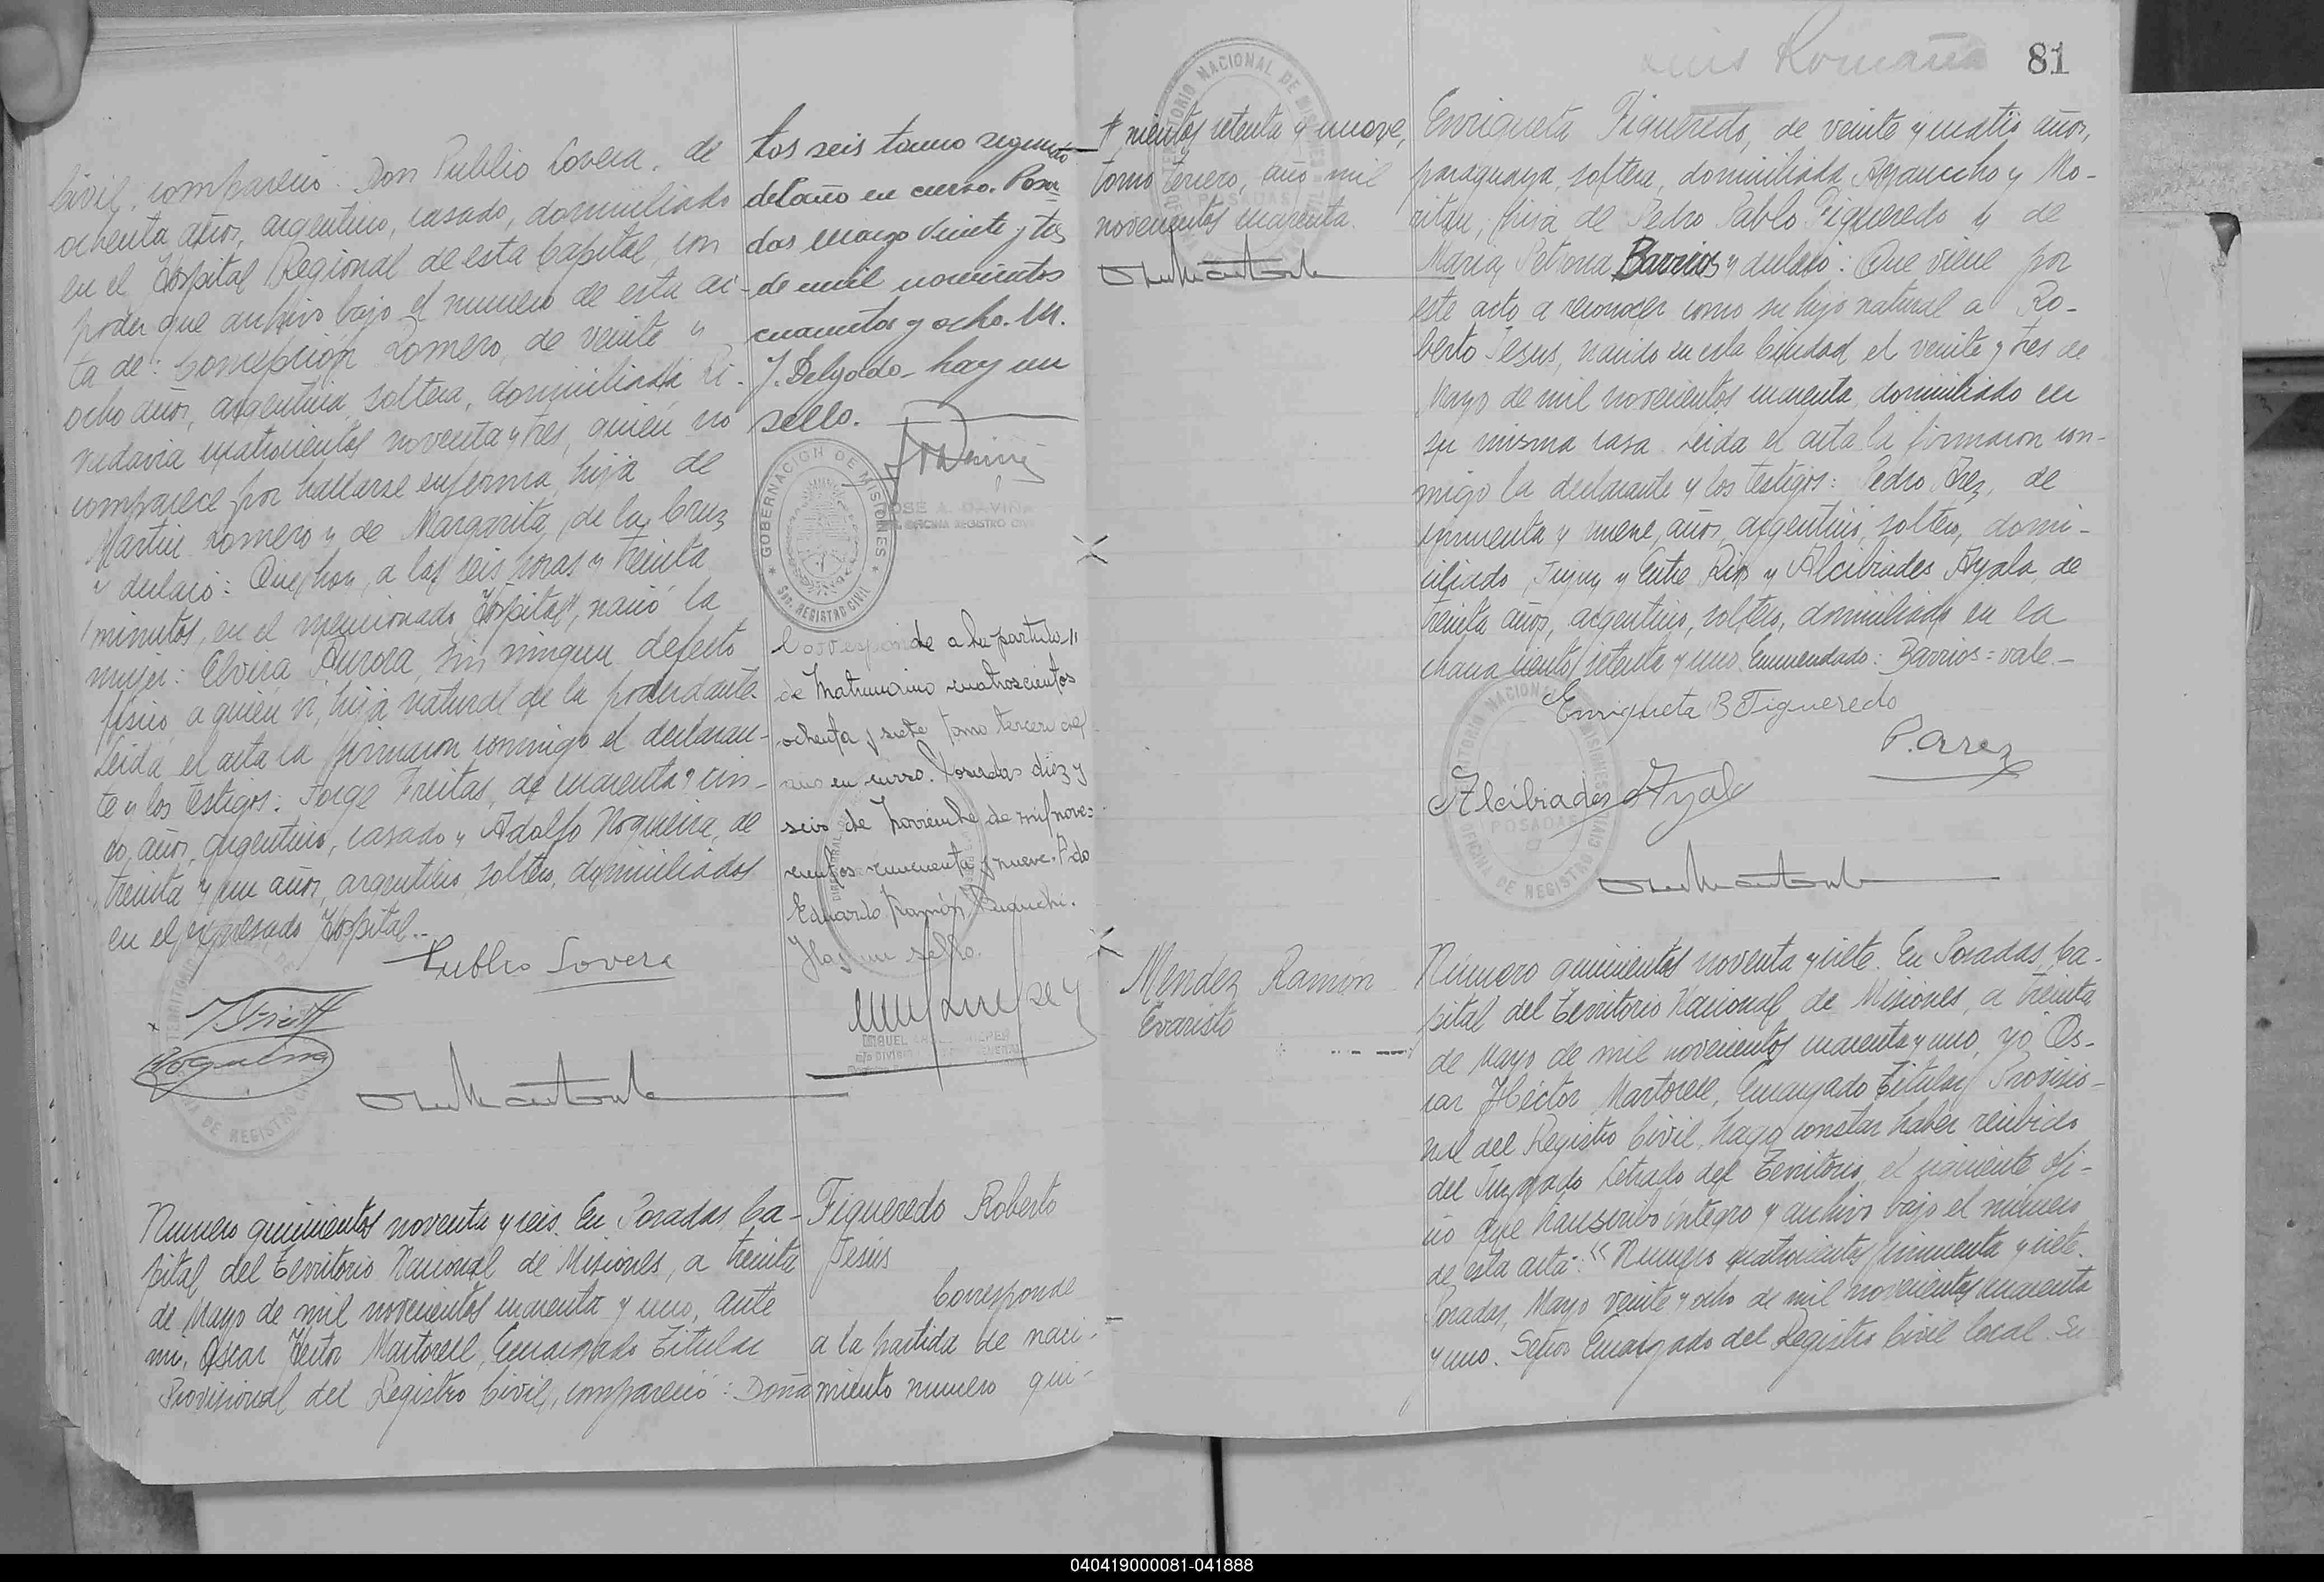 Civil, compareció: Don Publio Lovera, de
ochenta años, argentino, casado, domiciliado
en el Hospital Regional de esta Capital, con
poder que archivo bajo el numero de esta ac-
ta de: Concepción Romero, de veinte y
ocho años, argentina, soltera, domiciliada Ri-
vadavia cuatrocientos noventa y tres, quién no
comparece por hallarse enferma, hija de
Martin Romero y de Margarita de la Cruz
y declaró: Que hoy, a las seis horas y treinta
minutos, en el mencionado Hospital, nació la
mujer: Elvira Aurora, sin ningun defecto
fisico, a quién vi, hija natural de la poderdante.
Leida el acta la firmaron conmigo el declaran-
te y los testigos: Jorge Freitas, de cuarenta y cin-
co, años, argentino, casado y Adolfo Nogueira, de
treinta y un años, argentino, soltero, domiciliados
en el expresado Hospital.-
Publio Lovera
Nogueira
Numero quinientos noventa y seis. En Posadas, Ca-
pital del Territorio Nacional de Misiones, a treinta
de Mayo de mil novecientos cuarenta y uno, ante
mi, Oscar Hector Martorell, Encargado Titular
Provisional del Registro Civil, compareció: Doña
tos seis tomo segundo
del año en curso. Posa
das Marzo veinte y tres
de mil novecientos
cuarenta y ocho. M.
J. Delgado - hay un
sello.
GOBERNACION DE MISIONES
SEC. REGISTRO CIVIL
JOSE A. DAVIÑA
OFICINA REGISTRO CIVIL
Corresponde a la partida
de Matrimonio cuatroscientos
ochenta y siete tomo tercero del
año en curso. Posadas diez y
seis de Noviembre de mil nove-
cientos cincuenta y nueve. Fdo
Eduardo Ramón Bianchi.
Hay un sello.
MIGUEL
Figueredo Roberto
Jesús
Corresponde
a la partida de naci-
miento numero qui-
81
Luis Romaña
TERRITORIO NACIONAL DE MISIONES
POSADAS
nientos setenta y nueve,
tomo tercero, año mil
novecientos cuarenta.
Mendez Ramon
Evaristo
Enriqueta Figueredo, de veinte y cuatro años,
paraguaya, soltera, domiciliada Ayaucho y Mo-
ritan, hija de Pedro Pablo Figueredo y de
Maria Petrona Barrios y declaró: Que viene por
este acto a reconocer como su hijo natural a Ro-
berto Jesus, nacido en esta Ciudad el veinte y tres de
Mayo de mil novecientos cuarenta, domiciliado en
su misma casa. Leida el acta la firmaron con-
migo la declarante y los testigos: Pedro Arez, de
cincuenta y nueve, años, argentino, soltero, domi-
ciliado Jujuy y Entre Rios y Alcibiades Ayala, de
treinta años, argentino, soltero, domiciliado en la
chacra ciento setenta y uno. Enmendado: Barrios = vale.-
Enriqueta B Figueredo
P. Arez
Alcibiades Ayala
TERRITORIO NACIONAL DE MISIONES
POSADAS
OFICINA DE REGISTRO CIVIL
Número quinientos noventa y siete. En Posadas, Ca-
pital del Territorio Nacional de Misiones, a treinta
de Mayo de mil novecientos cuarenta y uno, yo Os-
car Héctor Martorell, Encargado Titular Provisio-
nal del Registro Civil, hago constar haber recibido
del Juzgado Letrado del Territorio, el siguiente ofi-
cio que transcribo íntegro y archivo bajo el número
de esta acta: "Numero cuatrocientos cincuenta y siete.
Posadas, Mayo veinte y ocho de mil novecientos cuarenta
y uno. Señor Encargado del Registro Civil Local. Su
040419000081-041888